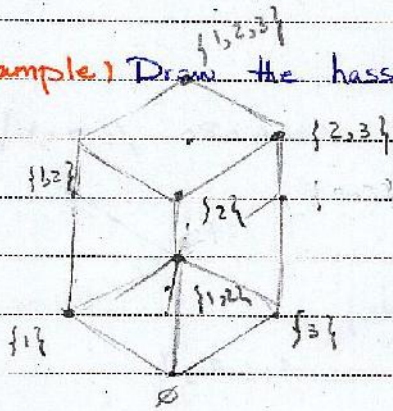 {1,2,3}
ample) Draw the hass
{2,3}
{1,2}
{2}
{1,2}
{1}
{3}
∅